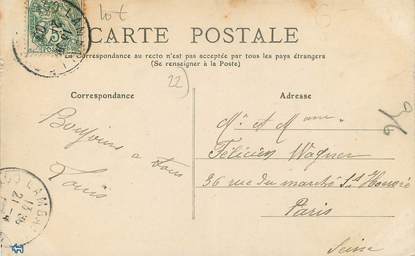 lot
CARTE POSTALE
La Correspondance au recto n'est pas acceptée par tous les pays étrangers
(Se renseigner à la Poste)
22
Correspondance
Adresse
Bonjour
a tous
Louis
Mr et Mame
Félicien Wagner
36 rue du marché St Honoré
Paris
Seine
LAMBA